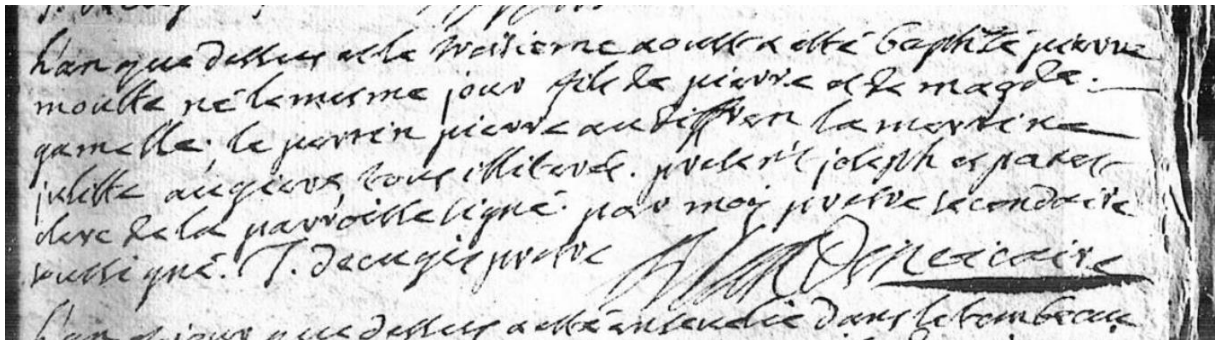 l'an que dessus et le troisieme aoust a esté baptisé pierre
moutte né le mesme jour fils de pierre et de magd.e
gamelle. le parrin pierre audiffren la marrine
julitte augiere tous illiterés. presents joseph espanet
clerc de la parroisse signé. par moy prestre secondaire
soussigné. J. decugis prestre
l'an et jour que dessus a esté ensevelie dans le tombeau